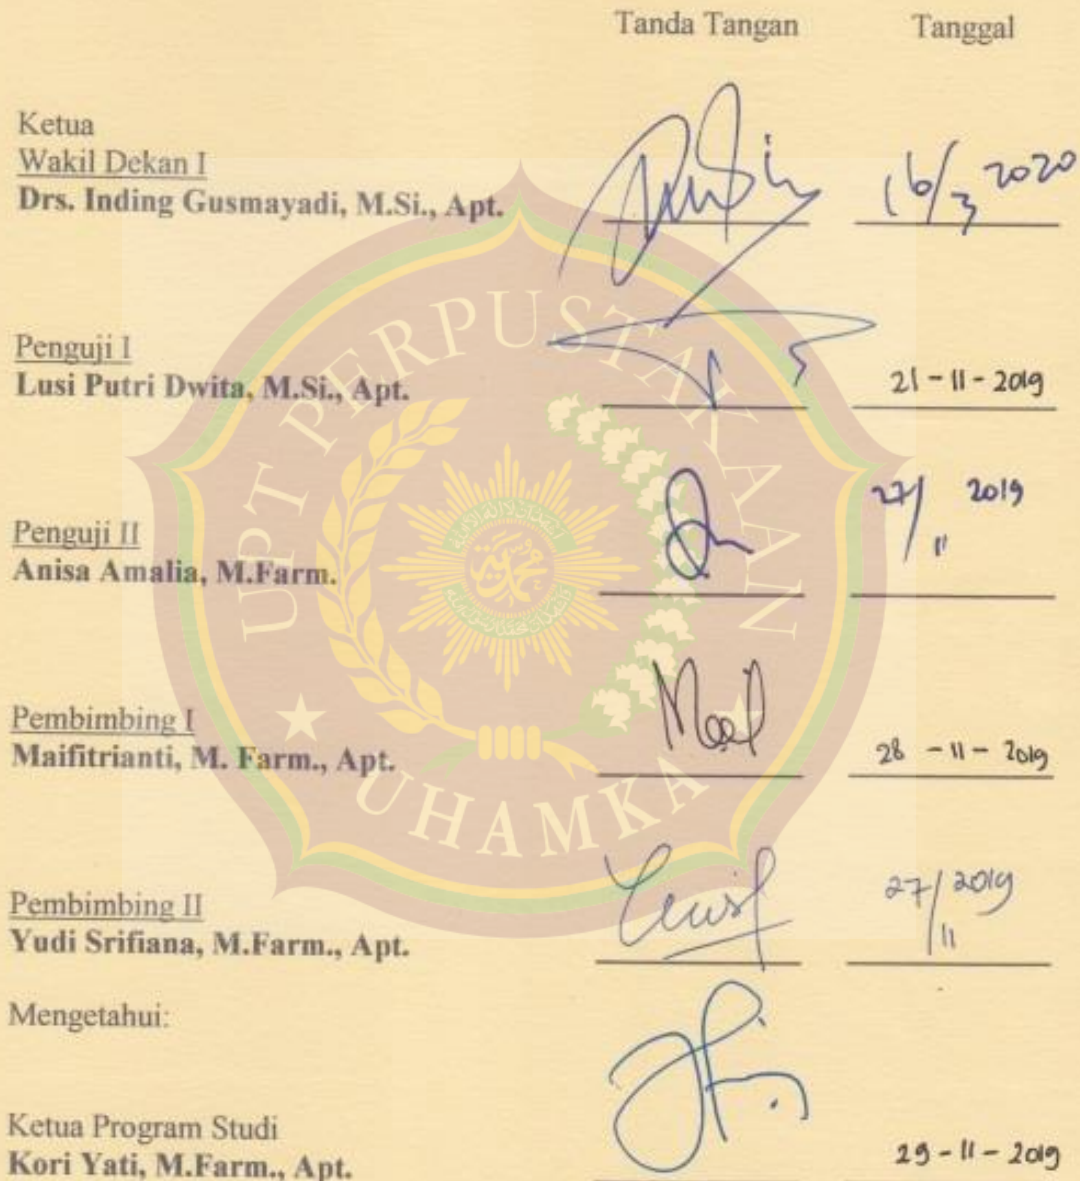 Tanda Tangan Tanggal
Ketua
Wakil Dekan I
Drs. Inding Gusmayadi, M.Si., Apt. 16/3 2020
Penguji I
Lusi Putri Dwita, M.Si., Apt. 21 - 11 - 2019
Penguji II
Anisa Amalia, M.Farm. 27/11 2019
Pembimbing I
Maifitrianti, M. Farm., Apt. 28 - 11 - 2019
Pembimbing II
Yudi Srifiana, M.Farm., Apt. 27/11 2019
Mengetahui:
Ketua Program Studi
Kori Yati, M.Farm., Apt. 29 - 11 - 2019
UPT PERPUSTAKAAN
UHAMKA